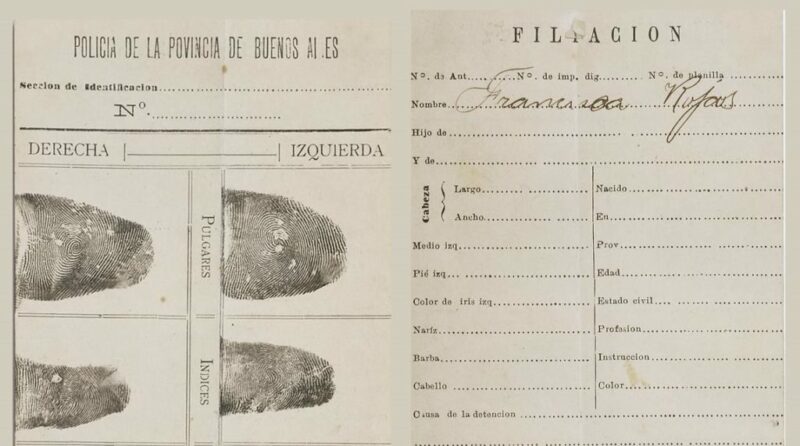 POLICIA DE LA POVINCIA DE BUENOS AI.ES
Seccion de Identificacion
Nº.
DERECHA IZQUIERDA
PULGARES
INDICES
FILIACION
Nº. de Ant. Nº. de imp. dig. Nº. de planilla
Nombre Francisca Rojas
Hijo de
Y de
Cabeza
Largo
Ancho
Medio izq
Pié izq
Color de iris izq
Naríz
Barba
Cabello
Nacido
En
Prov
Edad
Estado civil
Profesion
Instruccion
Color
Causa de la detencion